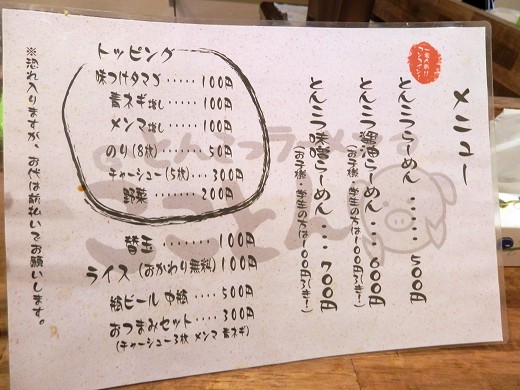 メニュー
一番人気!!
とんこつらーめん ・・・・・ 500円
とんこつ醤油らーめん ・・・ 600円
(お子様・学生の方は100円引き!)
とんこつ味噌らーめん ・・・ 700円
(お子様・学生の方は100円引き!)
トッピング
味つけタマゴ ・・・・・ 100円
青ネギ増し ・・・・・ 100円
メンマ増し ・・・・・ 100円
のり(8枚) ・・・・・ 50円
チャーシュー(5枚) ・・・ 300円
野菜 ・・・・・ 200円
替玉 ・・・・・・・ 100円
ライス(おかわり無料) 100円
瓶ビール 中瓶 ・・・・ 500円
おつまみセット ・・・・ 300円
(チャーシュー3枚 メンマ 青ネギ)
※恐れ入りますが、お代は前払いでお願いします。
とんこつラーメン